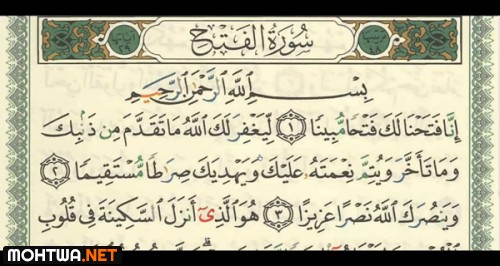 سُورَةُ الفَتْحِ
بِسْمِ اللَّهِ الرَّحْمَٰنِ الرَّحِيمِ
إِنَّا فَتَحْنَا لَكَ فَتْحًا مُّبِينًا ۝١ لِّيَغْفِرَ لَكَ اللَّهُ مَا تَقَدَّمَ مِن ذَنۢبِكَ
وَمَا تَأَخَّرَ وَيُتِمَّ نِعْمَتَهُۥ عَلَيْكَ وَيَهْدِيَكَ صِرَٰطًا مُّسْتَقِيمًا ۝٢
وَيَنصُرَكَ اللَّهُ نَصْرًا عَزِيزًا ۝٣ هُوَ الَّذِىٓ أَنزَلَ السَّكِينَةَ فِى قُلُوبِ
MOHTWA.NET